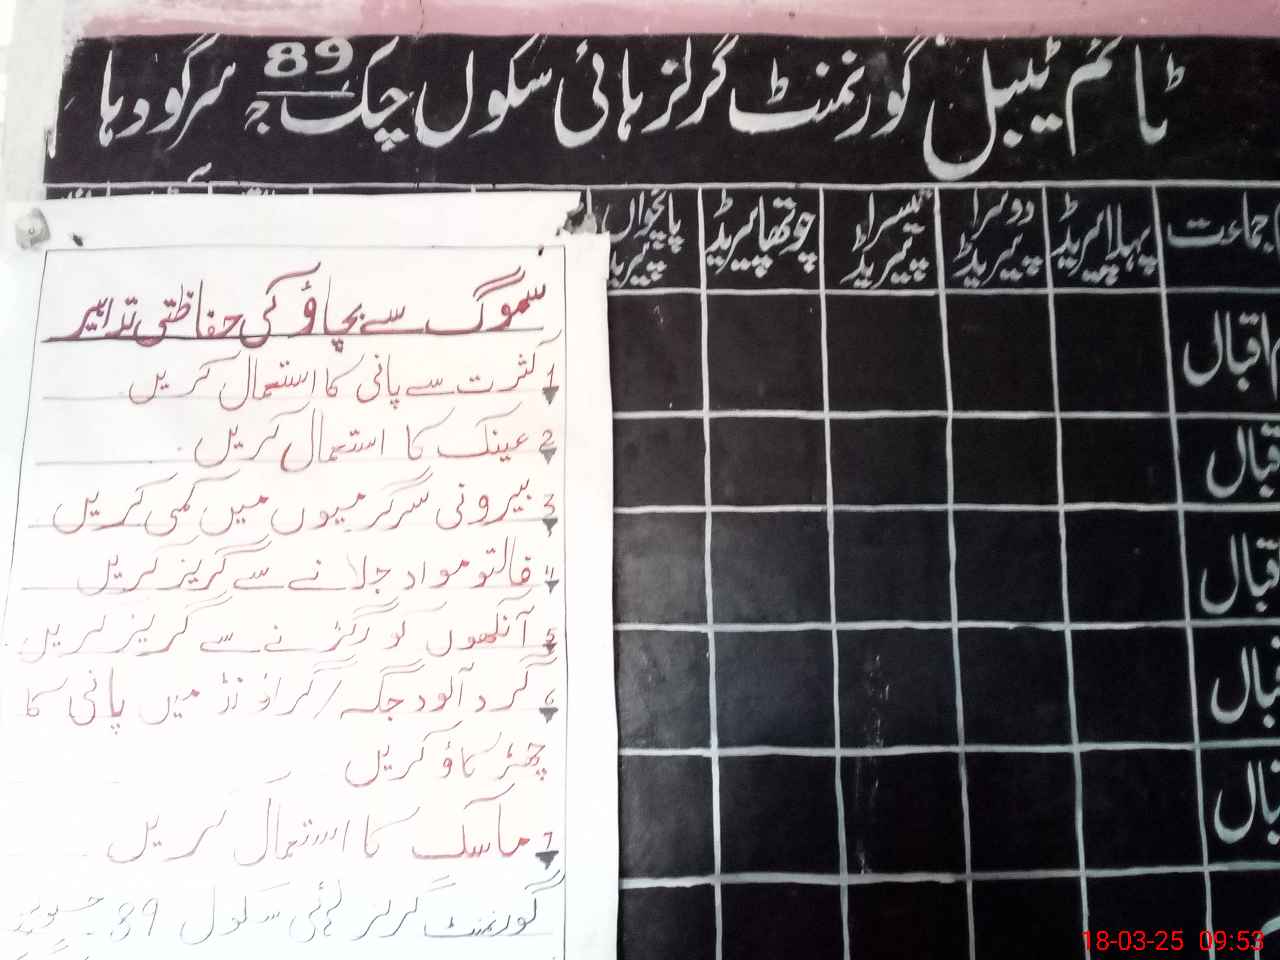 ٹائم ٹیبل گورنمنٹ گرلز ہائی سکول چک 89 ج سرگودہا
جماعت پہلا پیریڈ دوسرا پیریڈ تیسرا پیریڈ چوتھا پیریڈ پانچواں پیریڈ
اقبال
اقبال
اقبال
سموگ سے بچاؤ کی حفاظتی تدابیر
1 کثرت سے پانی کا استعمال کریں
2 عینک کا استعمال کریں
3 بیرونی سرگرمیوں میں کمی کریں
4 فالتو مواد جلانے سے گریز کریں
5 آنکھوں کو رگڑنے سے گریز کریں
6 گرد آلود جگہ / گراؤنڈ میں پانی کا
چھڑکاؤ کریں
7 ماسک کا استعمال کریں
گورنمنٹ گرلز ہائی سکول 89
18-03-25 09:53